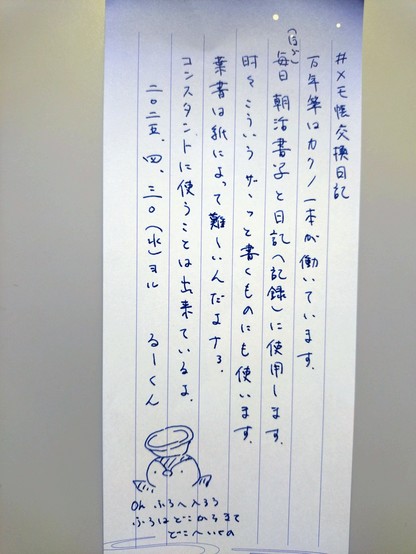 #メモ帳交換日記
万年筆はカクノ一本が働いています。
(ほぼ)
毎日 朝活書写と日記(記録)に使用します。
時々 こういう ザーッと書くものにも使います。
葉書は紙によって難しいんだよナァ。
コンスタントに使うことは出来ているよ。
二〇二五、四、三〇(水)ヨル るーくん
Oh ふろへ入ろう
ふろはどこからきて
どこへいくの